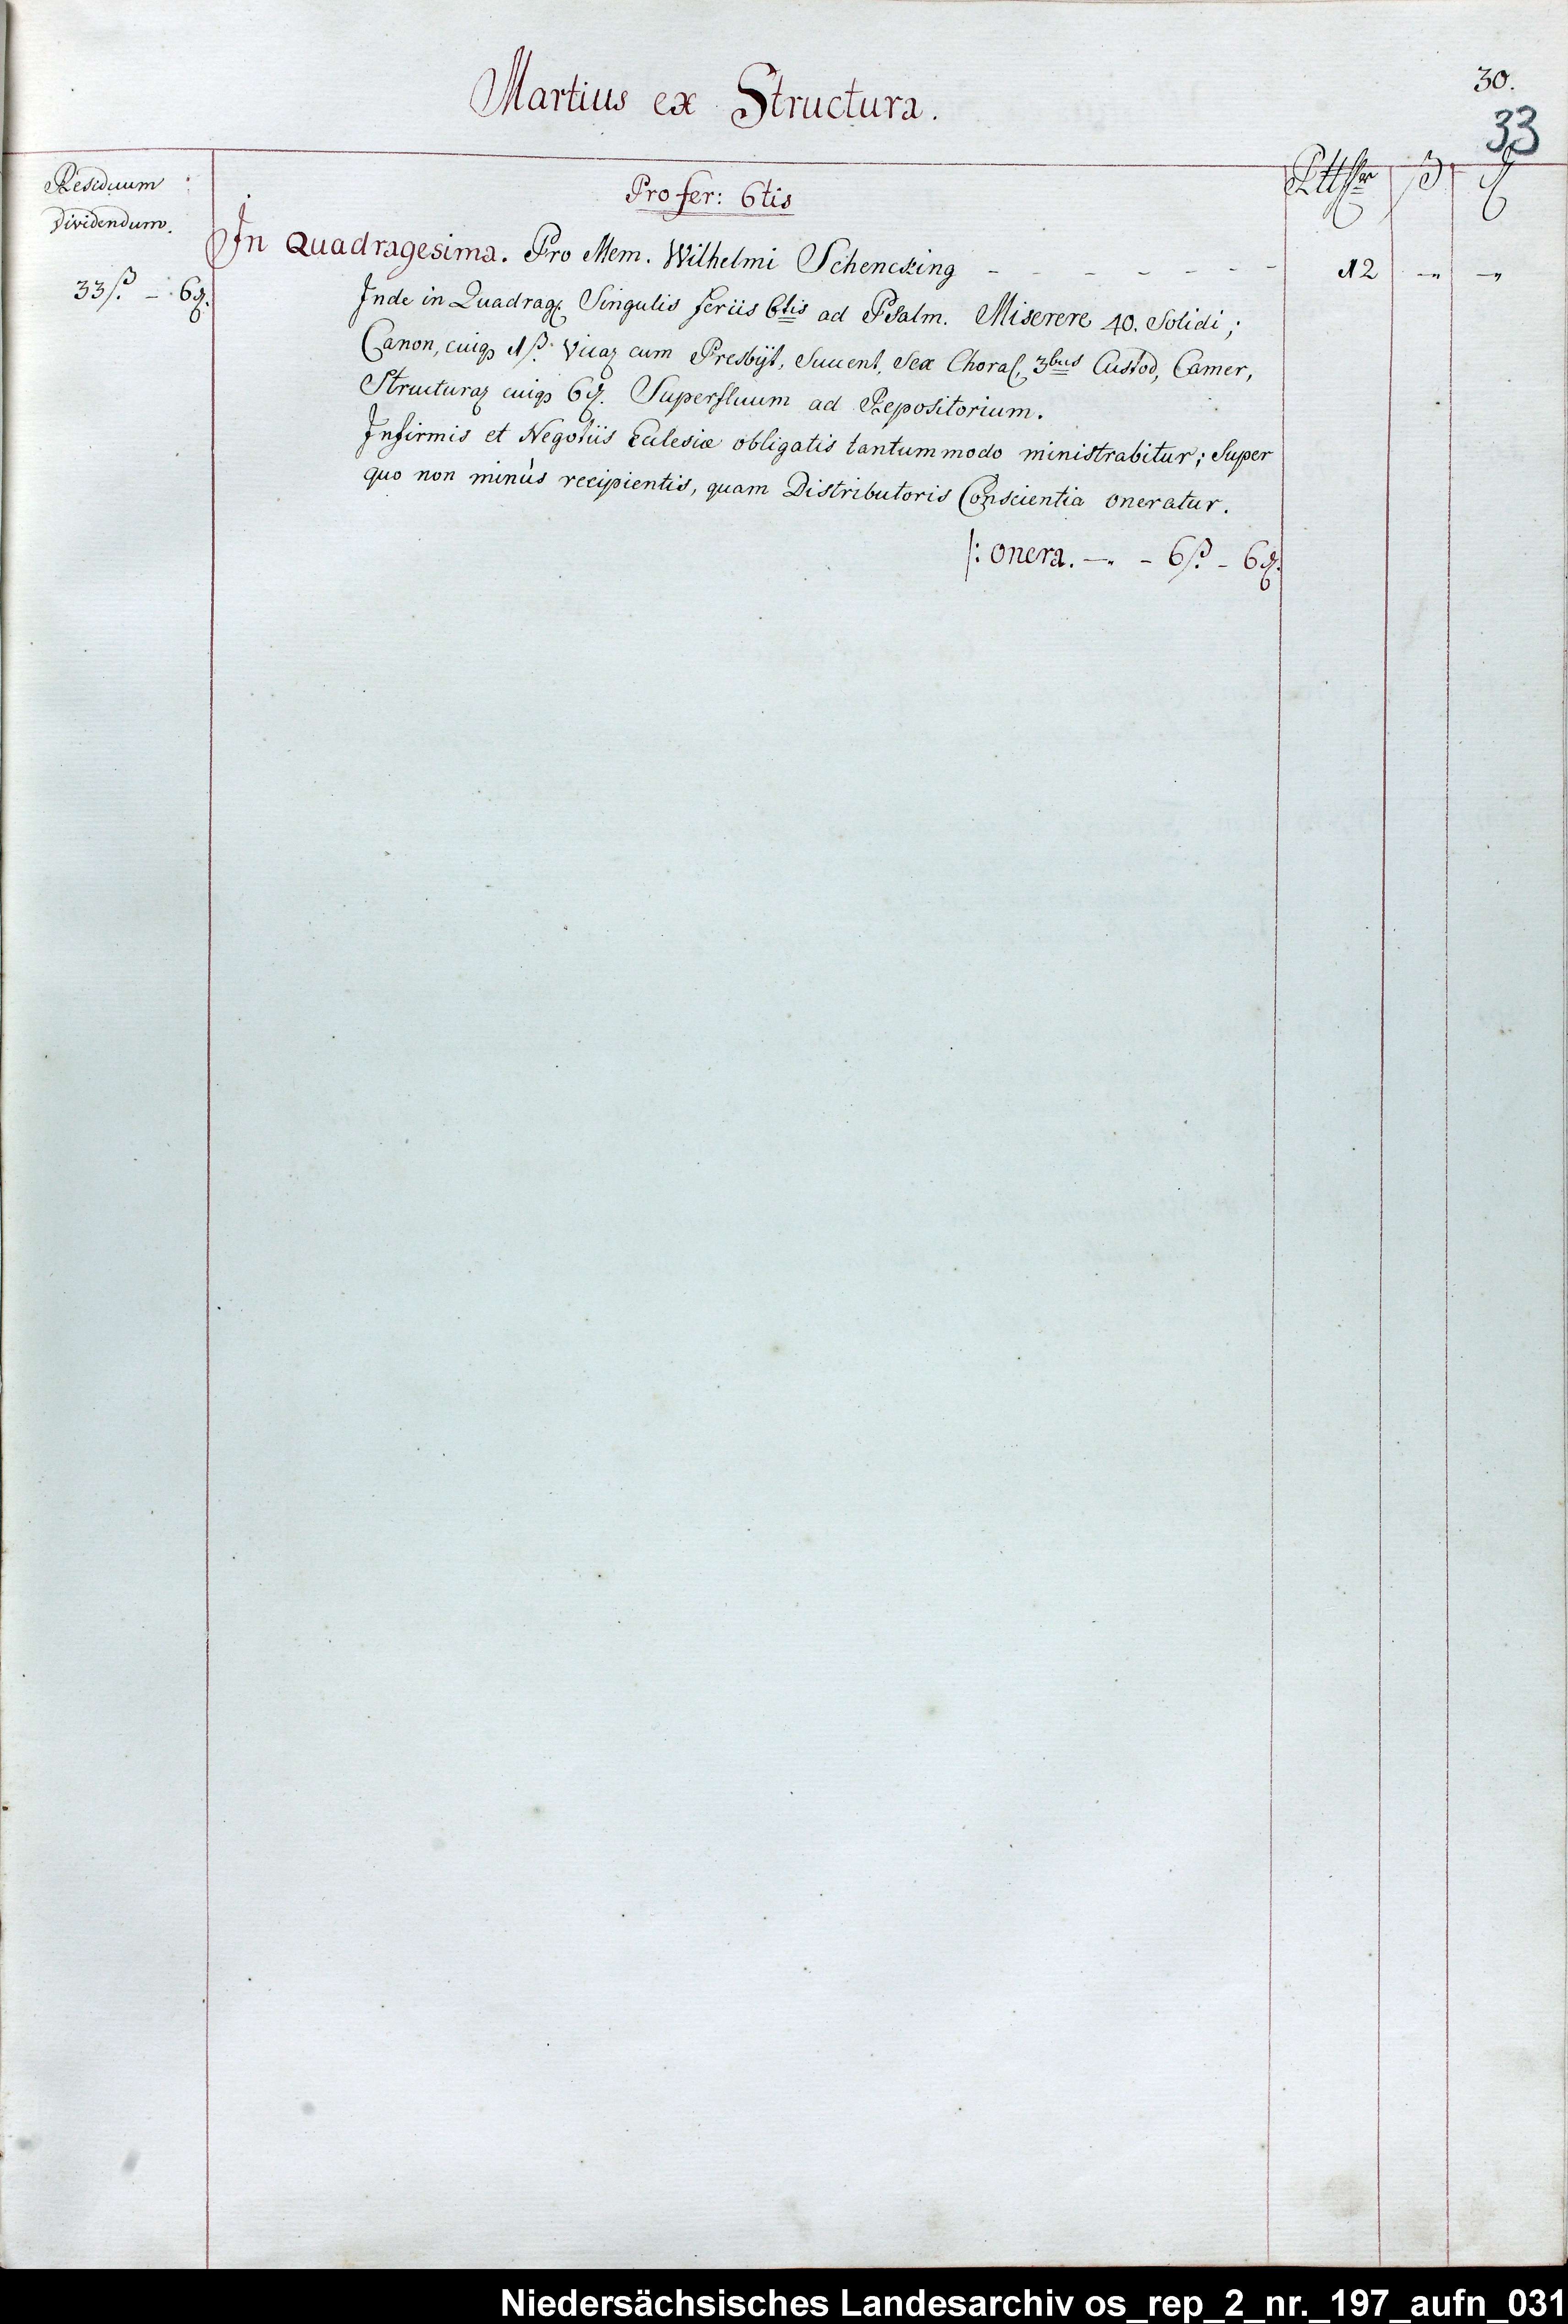 30.
Martius ex Structura.
33
Residuum
Dividendum.
Pro fer: 6tis
In Quadragesima. Pro Mem. Wilhelmi Schencking - - - - - - - 12 -„ -„
33 ß. - 6 ₰.
Inde in Quadrag. Singulis feriis 6tis ad Psalm. Miserere 40. Solidi;
Canon, cuiq3 1 ß. Vicaꝝ cum Presbÿt, Succent, Sex Choral, 3bus Custod, Camer,
Structuraꝝ cuiq3 6 ₰. Superfluum ad Repositorium.
Infirmis et Negotiis Ecclesiæ obligatis tantummodo ministrabitur; Super
quo non minùs recipientis, quam Distributoris Conscientia oneratur.
/: onera. -„ - 6 ß. - 6 ₰.
Niedersächsisches Landesarchiv os_rep_2_nr._197_aufn_031